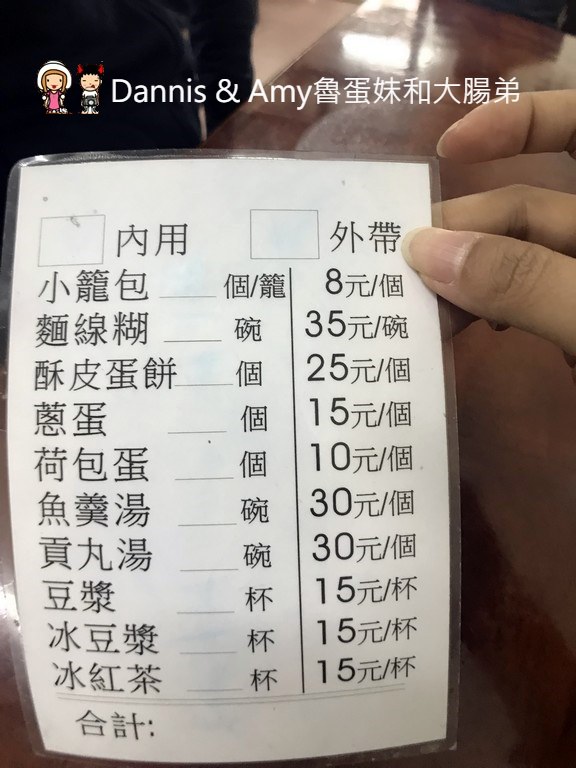 Dannis & Amy魯蛋妹和大腸弟
內用 外帶
小籠包 ___ 個/籠 8元/個
麵線糊 ___ 碗 35元/碗
酥皮蛋餅 ___ 個 25元/個
蔥蛋 ___ 個 15元/個
荷包蛋 ___ 個 10元/個
魚羹湯 ___ 碗 30元/個
貢丸湯 ___ 碗 30元/個
豆漿 ___ 杯 15元/杯
冰豆漿 ___ 杯 15元/杯
冰紅茶 ___ 杯 15元/杯
合計: